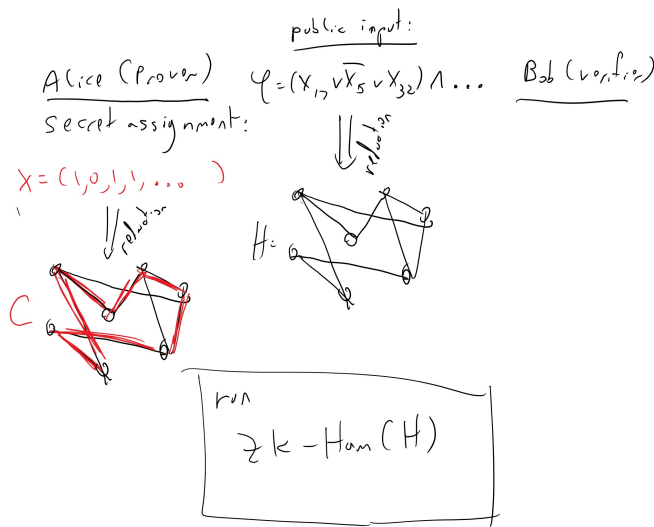 public input:
Alice (Prover)
φ = (x₁₇ ∨ x̅₅ ∨ x₃₂) ∧ ...
Bob (verifier)
secret assignment:
reduction
x = (1,0,1,1,... )
reduction
H=
C
run
zk-Ham(H)